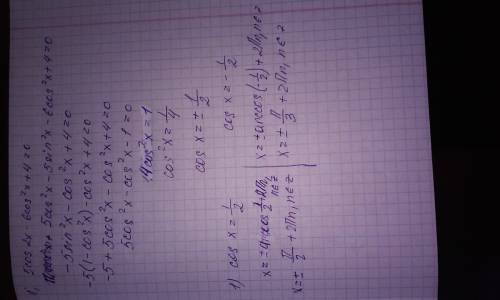 1) 5cos 2x - 6cos²x + 4 = 0
5cos²x - 5sin²x - 6cos²x + 4 = 0
-5sin²x - cos²x + 4 = 0
-5(1 - cos²x) - cos²x + 4 = 0
-5 + 5cos²x - cos²x + 4 = 0
5cos²x - cos²x - 1 = 0
4cos²x = 1
cos²x = 1/4
cos x = ± 1/2
1) cos x = 1/2
cos x = - 1/2
x = ± arccos 1/2 + 2πn, n∈z
x = ± π/2 + 2πn, n∈z
x = ± arccos(-1/2) + 2πn, n∈z
x = ± π/3 + 2πn, n∈z